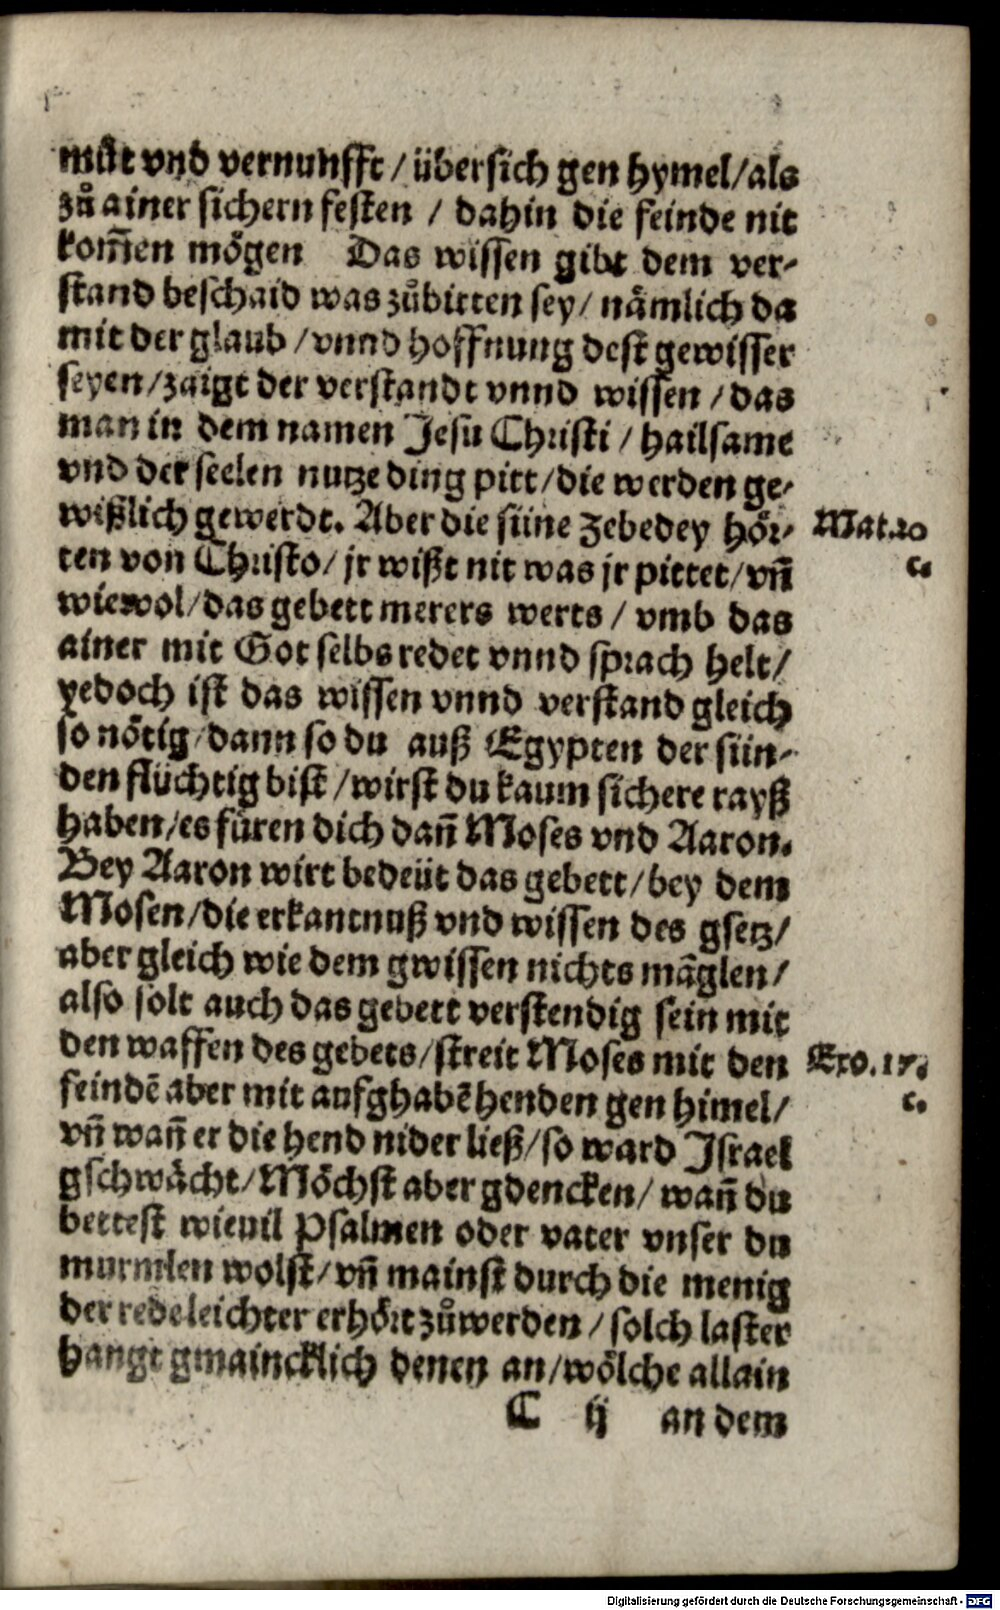 můt vnd vernunfft / übersich gen hymel/als
zů ainer sichern festen / dahin die feinde nit
kom̃en mögen Das wissen gibt dem ver-
stand beschaid was zůbitten sey/ nämlich da
mit der glaub /vnnd hoffnung dest gewisser
seyen/zaigt der verstandt vnnd wissen /das
man in dem namen Jesu Christi / hailsame
vnd der seelen nutze ding pitt/die werden ge-
wißlich gewerdt. Aber die süne Zebedey hör-
Mat.20
ten von Christo/ jr wißt nit was jr pittet/vñ
c.
wiewol/das gebett merers werts / vmb das
ainer mit Got selbs redet vnnd sprach helt/
yedoch ist das wissen vnnd verstand gleich
so nötig/dann so du auß Egypten der sün-
den flüchtig bist /wirst du kaum sichere rayß
haben/es füren dich dañ Moses vnd Aaron.
Bey Aaron wirt bedeüt das gebett/bey dem
Mosen/die erkantnuß vnd wissen des gsetz/
aber gleich wie dem gwissen nichts mãglen/
also solt auch das gebett verstendig sein mit
den waffen des gebets/streit Moses mit den
Exo.17.
feindẽ aber mit aufghabẽ henden gen himel/
c.
vñ wañ er die hend nider ließ/so ward Israel
gschwächt/Möchst aber gdencken/ wañ du
bettest wieuil Psalmen oder vater vnser du
murmlen wolst/vñ mainst durch die menig
der rede leichter erhört zůwerden /solch laster
hangt gmaincklich denen an/wölche allain
C ij an dem
Digitalisierung gefördert durch die Deutsche Forschungsgemeinschaft - DFG